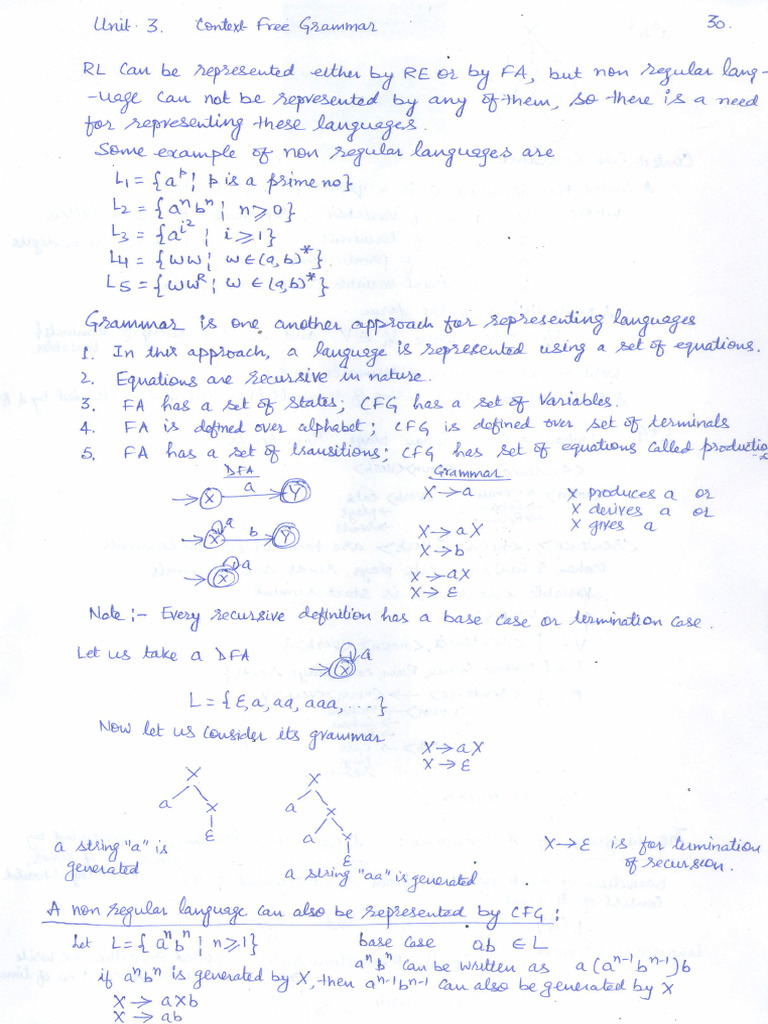 Unit 3. Context Free Grammar 30.
RL can be represented either by RE or by FA, but non regular lang-
-uage can not be represented by any of them, so there is a need
for representing these languages.
Some example of non regular languages are
L₁ = {aᵖ | p is a prime no}
L₂ = {aⁿbⁿ | n ⩾ 0}
L₃ = {a^i² | i ⩾ 1}
L₄ = {ww | w ∈ (a,b)*}.
L₅ = {wwᴿ | w ∈ (a,b)*}
Grammar is one another approach for representing languages
1. In this approach, a language is represented using a set of equations.
2. Equations are recursive in nature.
3. FA has a set of states; CFG has a set of variables.
4. FA is defined over alphabet; CFG is defined over set of terminals
5. FA has a set of transitions; CFG has set of equations called productions
DFA Grammar
X a Y X → a X produces a or
X derives a or
X gives a
X a b Y X → aX
X → b
X a X → aX
X → ε
Note :- Every recursive definition has a base case or termination case.
Let us take a DFA X a
L = {ε, a, aa, aaa, ...}
Now let us consider its grammar X → aX
X → ε
X X
a X a X
ε a X
ε
a string "a" is
generated
a string "aa" is generated
X → ε is for termination
of recursion.
A non regular language can also be represented by CFG :
Let L = {aⁿbⁿ | n ⩾ 1} base case ab ∈ L
aⁿbⁿ can be written as a(aⁿ⁻¹bⁿ⁻¹)b
if aⁿbⁿ is generated by X, then aⁿ⁻¹bⁿ⁻¹ can also be generated by X
X → aXb
X → ab